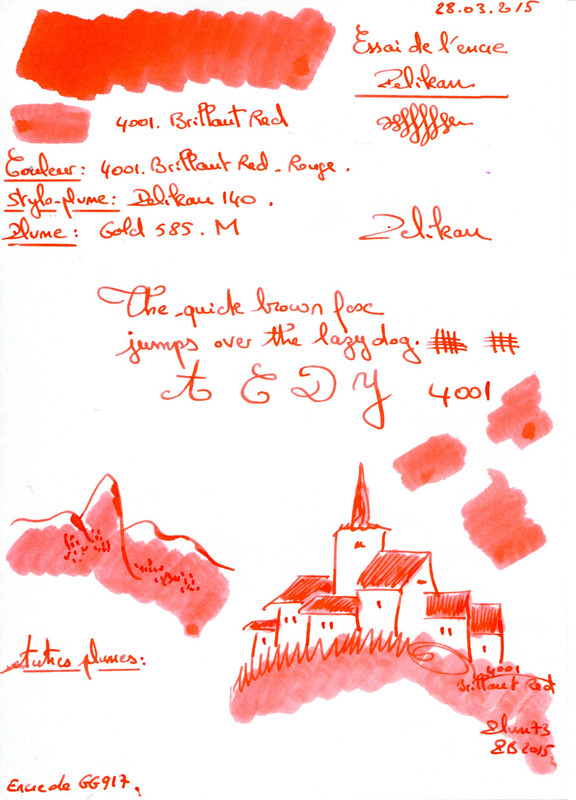 28.03.2015
Essai de l'encre
Pelikan
4001. Brillant Red
Couleur: 4001. Brillant Red - Rouge.
Stylo-plume: Pelikan 140.
Plume: Gold 585. M
Pelikan
The quick brown fox
jumps over the lazy dog.
A E D Y 4001
Autres plumes:
4001
Brillant Red
EB 2015
Encre de GG917.